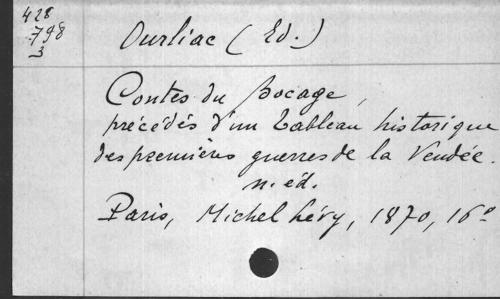 428
798
3
Ourliac (Ed.)
Contes du Bocage,
précédés d'un tableau historique
des premières guerres de la Vendée.
n. éd.
Paris, Michel Lévy, 1870, 16°